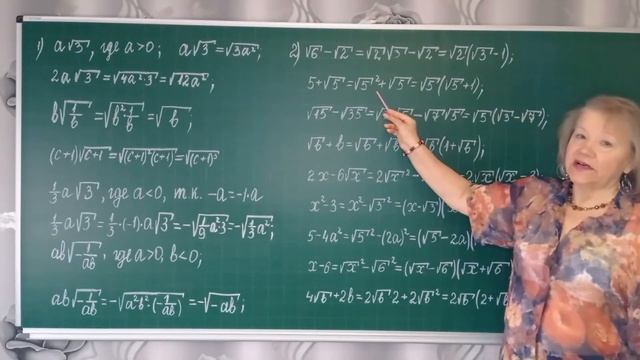 1) a√3, где a>0;  a√3=√3a²;
2a√3=√4a²·3=√12a²;
b√1/b=√b²·1/b=√b;
(c+1)√c+1=√(c+1)²(c+1)=√(c+1)³
1/3a√3, где a<0, т.к. -a=-1·a
1/3a√3=1/3·(-1)·a√3=-√1/9·a²·3=-√1/3a²;
ab√-1/ab, где a>0, b<0;
ab√-1/ab=-√a²b²·(-1/ab)=-√-ab;
2) √6-√2=√2√3-√2=√2(√3-1);
5+√5=√5²+√5=√5(√5+1);
√15-√35=√7√5=√5(√3-√7);
√b+b=√b+√b(1+√b);
2x-6√x=2√x²-2√x(√x-3);
x²-3=x²-√3²=(x-√3)(x
5-4a²=√5²-(2a)²=(√5-2a)(
x-6=√x²-√6²=(√x-√6)(√x+√6)
4√b+2b=2√b·2+2√b²=2√b(2+√b